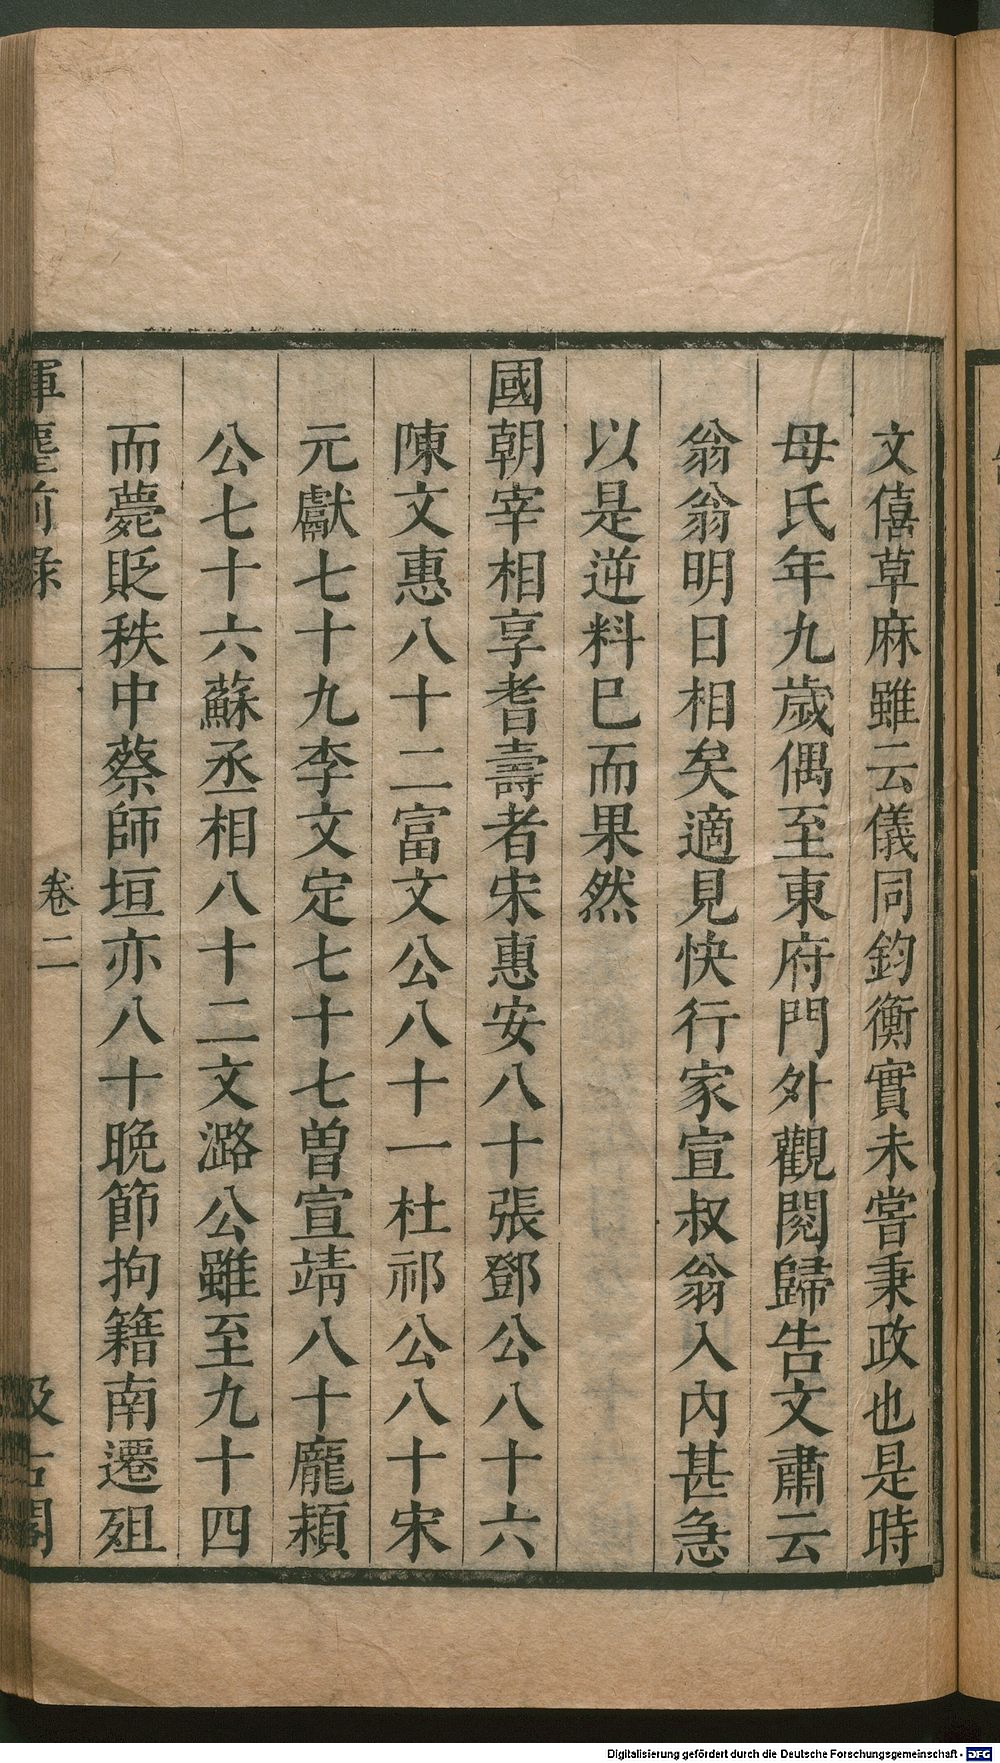 文僖草麻雖云儀同鈞衡實未嘗秉政也是時
母氏年九歲偶至東府門外觀閱歸告文肅云
翁翁明日相矣適見快行家宣叔翁入內甚急
以是逆料已而果然
國朝宰相享耆壽者宋惠安八十張鄧公八十六
陳文惠八十二富文公八十一杜祁公八十宋
元獻七十九李文定七十七曾宣靖八十龐穎
公七十六蘇丞相八十二文潞公雖至九十四
而薨貶秩中蔡師垣亦八十晚節拘籍南遷殂
揮麈前錄
卷二
汲古閣
Digitalisierung gefördert durch die Deutsche Forschungsgemeinschaft - DFG